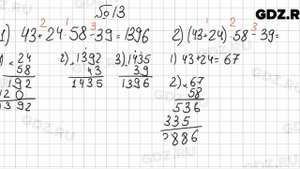 №13
GDZ.RU
1) 43+24·58-39=1396
2) (43+24)·58-39=
1) 24
58
192
120
1392
2) 1392
43
1435
3) 1435
39
1396
1) 43+24=67
2) 67
58
536
335
3886